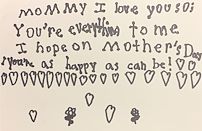 mommy I love you so;
You're everything to me
I hope on mother's Day
you're as happy as can be!